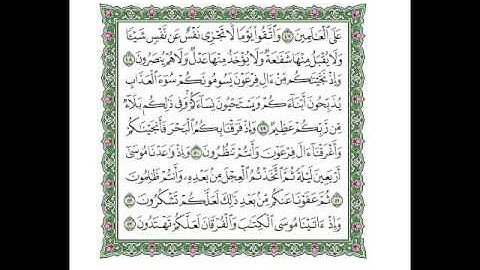 عَلَى ٱلْعَٰلَمِينَ ٤٧ وَٱتَّقُوا۟ يَوْمًا لَّا تَجْزِى نَفْسٌ عَن نَّفْسٍ شَيْـًٔا
وَلَا يُقْبَلُ مِنْهَا شَفَٰعَةٌ وَلَا يُؤْخَذُ مِنْهَا عَدْلٌ وَلَا هُمْ يُنصَرُونَ ٤٨
وَإِذْ نَجَّيْنَٰكُم مِّنْ ءَالِ فِرْعَوْنَ يَسُومُونَكُمْ سُوٓءَ ٱلْعَذَابِ
يُذَبِّحُونَ أَبْنَآءَكُمْ وَيَسْتَحْيُونَ نِسَآءَكُمْ وَفِى ذَٰلِكُم بَلَآءٌ
مِّن رَّبِّكُمْ عَظِيمٌ ٤٩ وَإِذْ فَرَقْنَا بِكُمُ ٱلْبَحْرَ فَأَنجَيْنَٰكُمْ
وَأَغْرَقْنَآ ءَالَ فِرْعَوْنَ وَأَنتُمْ تَنظُرُونَ ٥٠ وَإِذْ وَٰعَدْنَا مُوسَىٰٓ
أَرْبَعِينَ لَيْلَةً ثُمَّ ٱتَّخَذْتُمُ ٱلْعِجْلَ مِنۢ بَعْدِهِۦ وَأَنتُمْ ظَٰلِمُونَ ٥١
ثُمَّ عَفَوْنَا عَنكُم مِّنۢ بَعْدِ ذَٰلِكَ لَعَلَّكُمْ تَشْكُرُونَ ٥٢
وَإِذْ ءَاتَيْنَا مُوسَى ٱلْكِتَٰبَ وَٱلْفُرْقَانَ لَعَلَّكُمْ تَهْتَدُونَ ٥٣